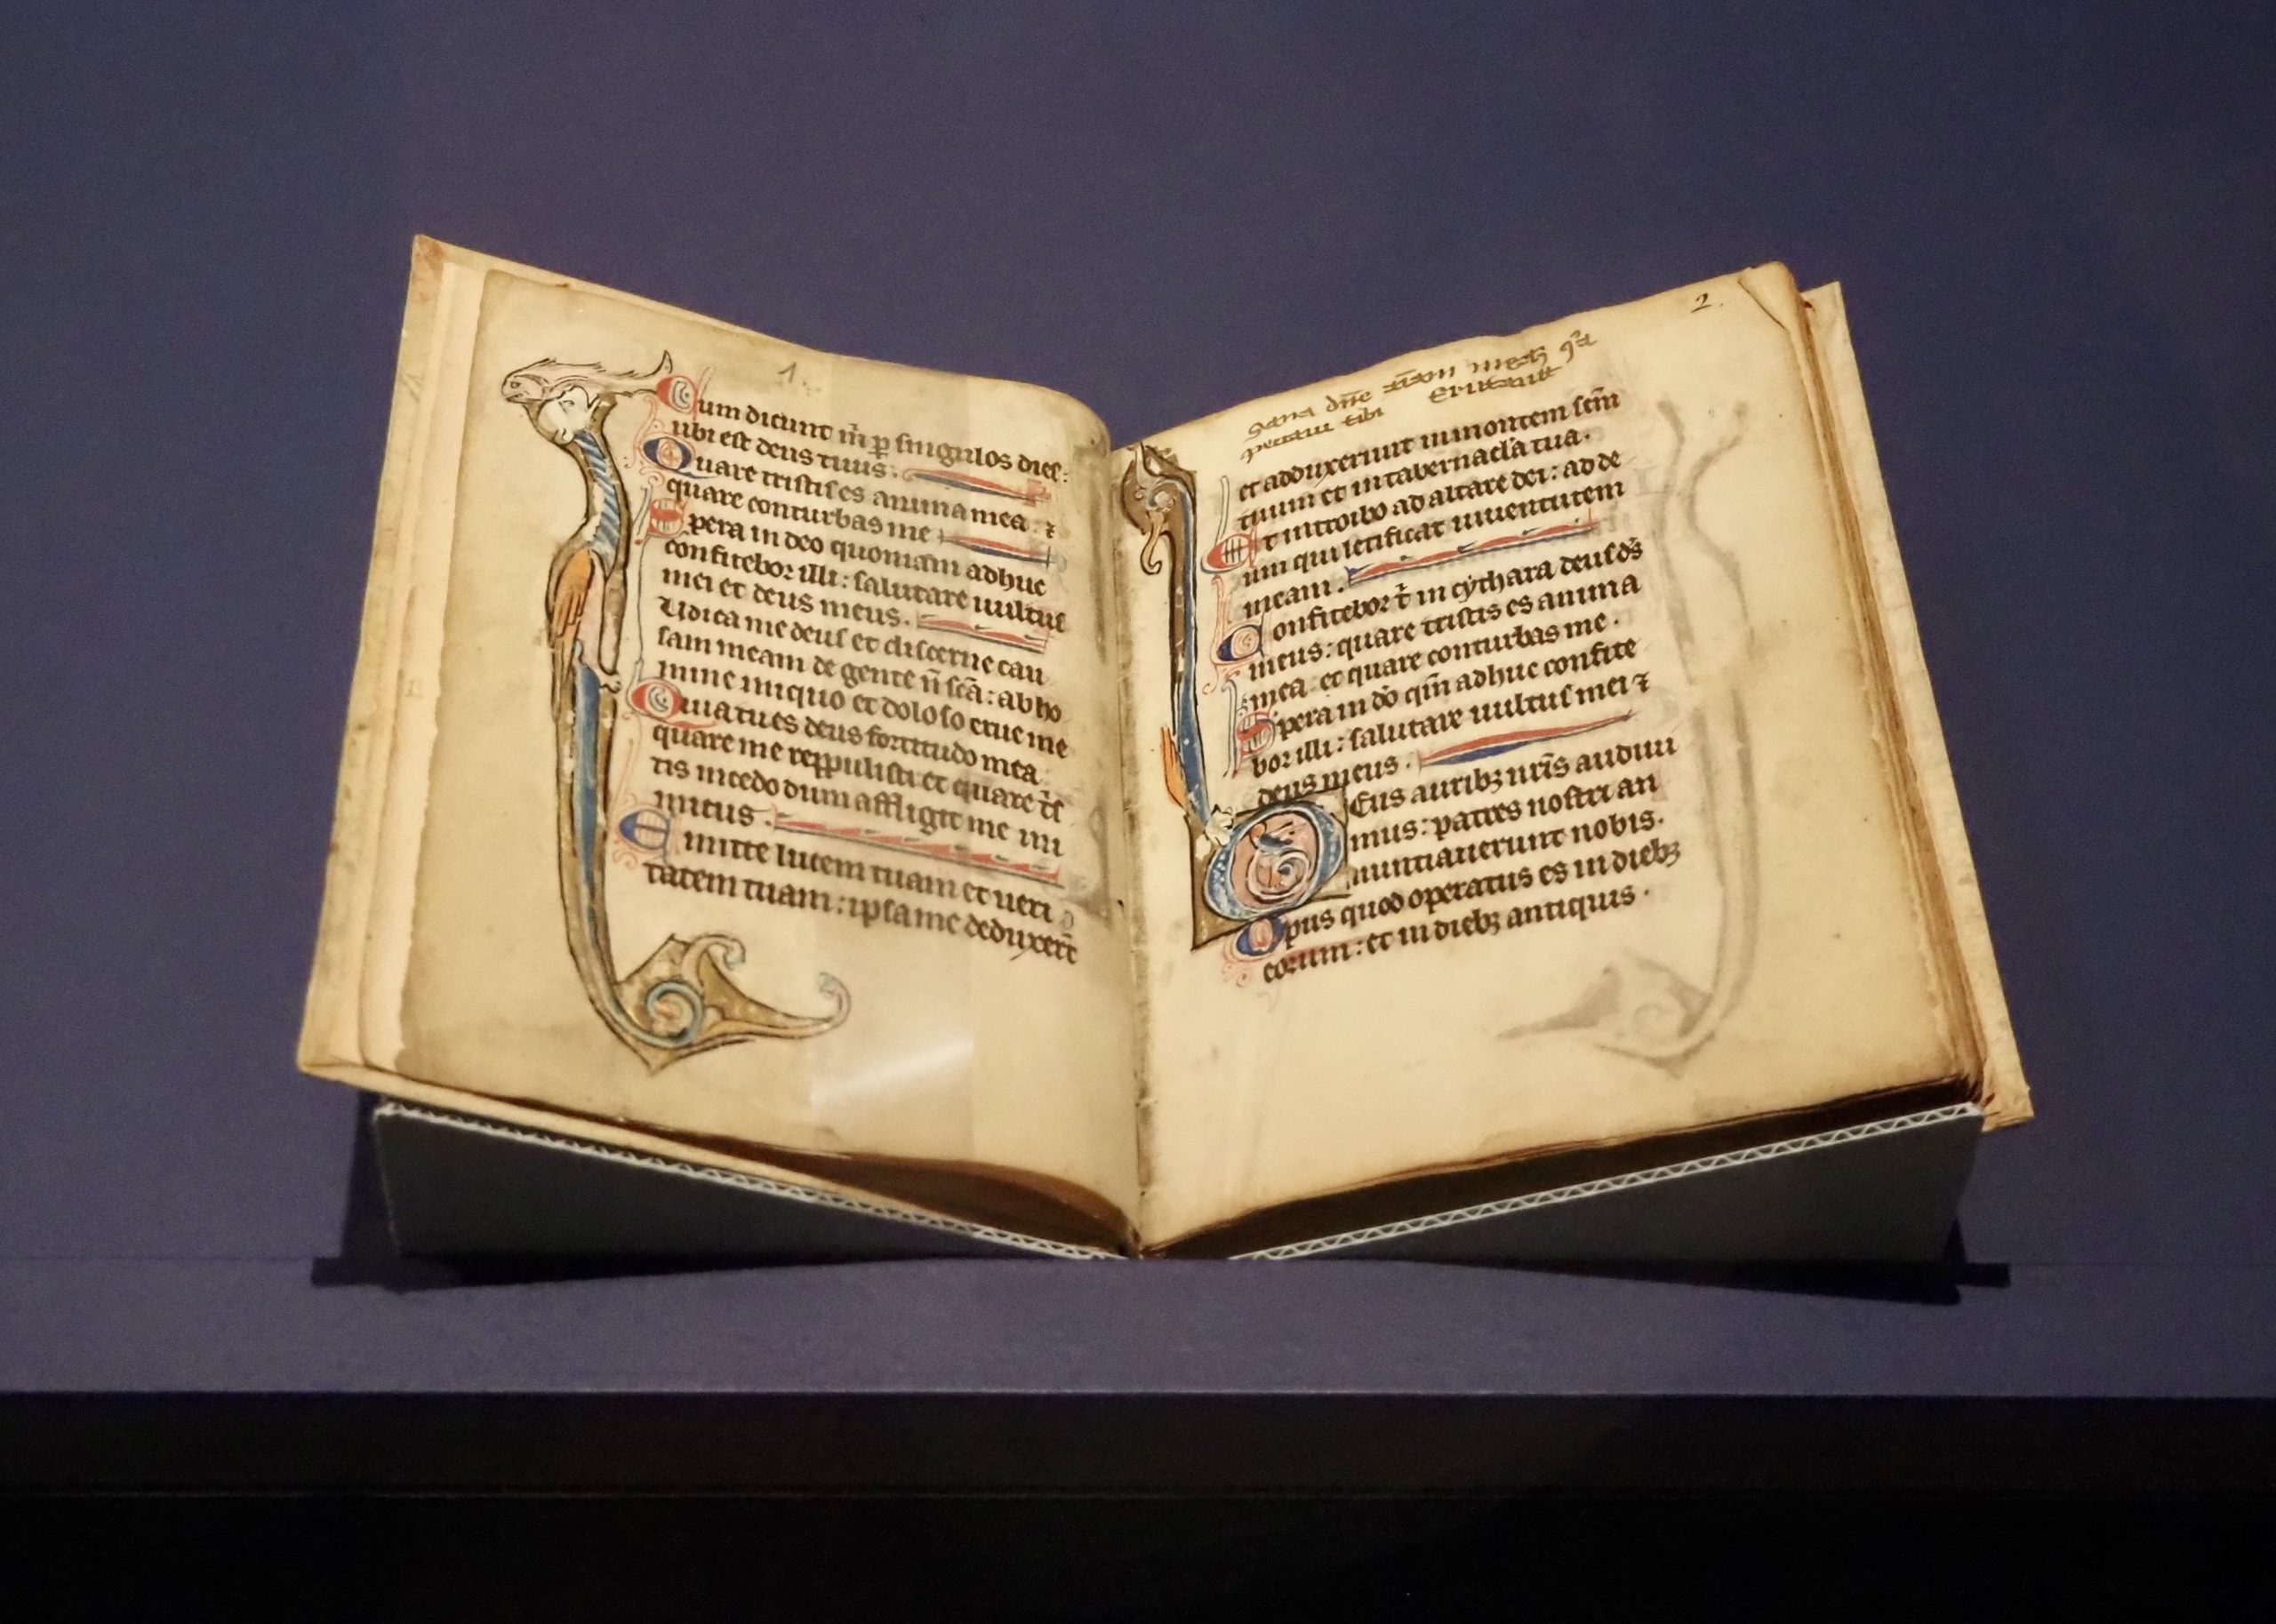 1.
Cum dicunt m̄ p̲ singulos dies:
ubi est deus tuus.
Quare tristis es anima mea: ⁊
quare conturbas me
Spera in deo quoniam adhuc
confitebor illi: salutare uultus
mei et deus meus.
Iudica me deus et discerne cau
sam meam de gente ñ scā: ab ho
mine iniquo et doloso erue me
Quia tu es deus fortitudo mea
quare me reppulisti et quare t̄s
tis incedo dum affligit me ini
micus.
Emitte lucem tuam et ueri
tatem tuam: ipsa me deduxer̄t
2.
Sana dn̄e
peccaui tibi Eructauit
et adduxerunt in montem scm̄
tuum et in tabernacl̄a tua.
Et introibo ad altare dei: ad de
um qui letificat iuuentutem
meam.
Confitebor t̄ in cythara deus ds̄
meus: quare tristis es anima
mea et quare conturbas me.
Spera in dō qm̄ adhuc confite
bor illi: salutare uultus mei ⁊
deus meus.
Deus auribꝫ nr̄is audiui
mus: patres nostri an
nuntiauerunt nobis.
Opus quod operatus es in diebꝫ
eorum: et in diebꝫ antiquis.